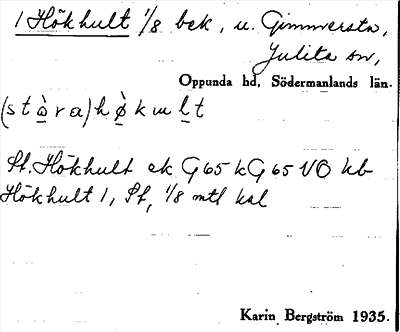 1 Hökhult 1/8 bek, u. Gimmersta,
Julita sn,
Oppunda hd, Södermanlands län.
(stòra) hø̀kmḷt
St. Hökhult ek G65 kG65 VÖ kb
Hökhult 1, St, 1/8 mtl ksl
Karin Bergström 1935.